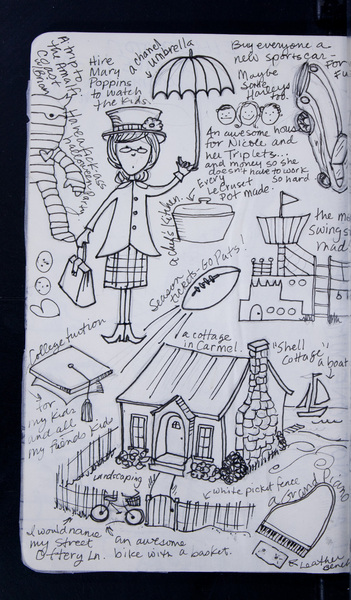 A trip to
the Amalfi
Coast
Hire
Mary
Poppins
to watch
the kids.
a chanel
umbrella
Buy everyone a
new sportscar-
Maybe
some
Harleys
too.
For
Fu
An awesome hous
for Nicole and
her Triplets...
and money so she
doesn't have to work
so hard
Every
LeCruset
Pot made.
a chef's kitchen.
the mo
Swingsi
made
Season
tickets-Go Pats!
College tuition
for
my kids
and all
my Pseudo kid
a cottage
in Carmel.
"Shell
Cottage"
a boat
Landscaping
white picket fence
a grand Piano
I would name
my Street
Ottery Ln.
an awesome
bike with a basket.
Leather
Bench